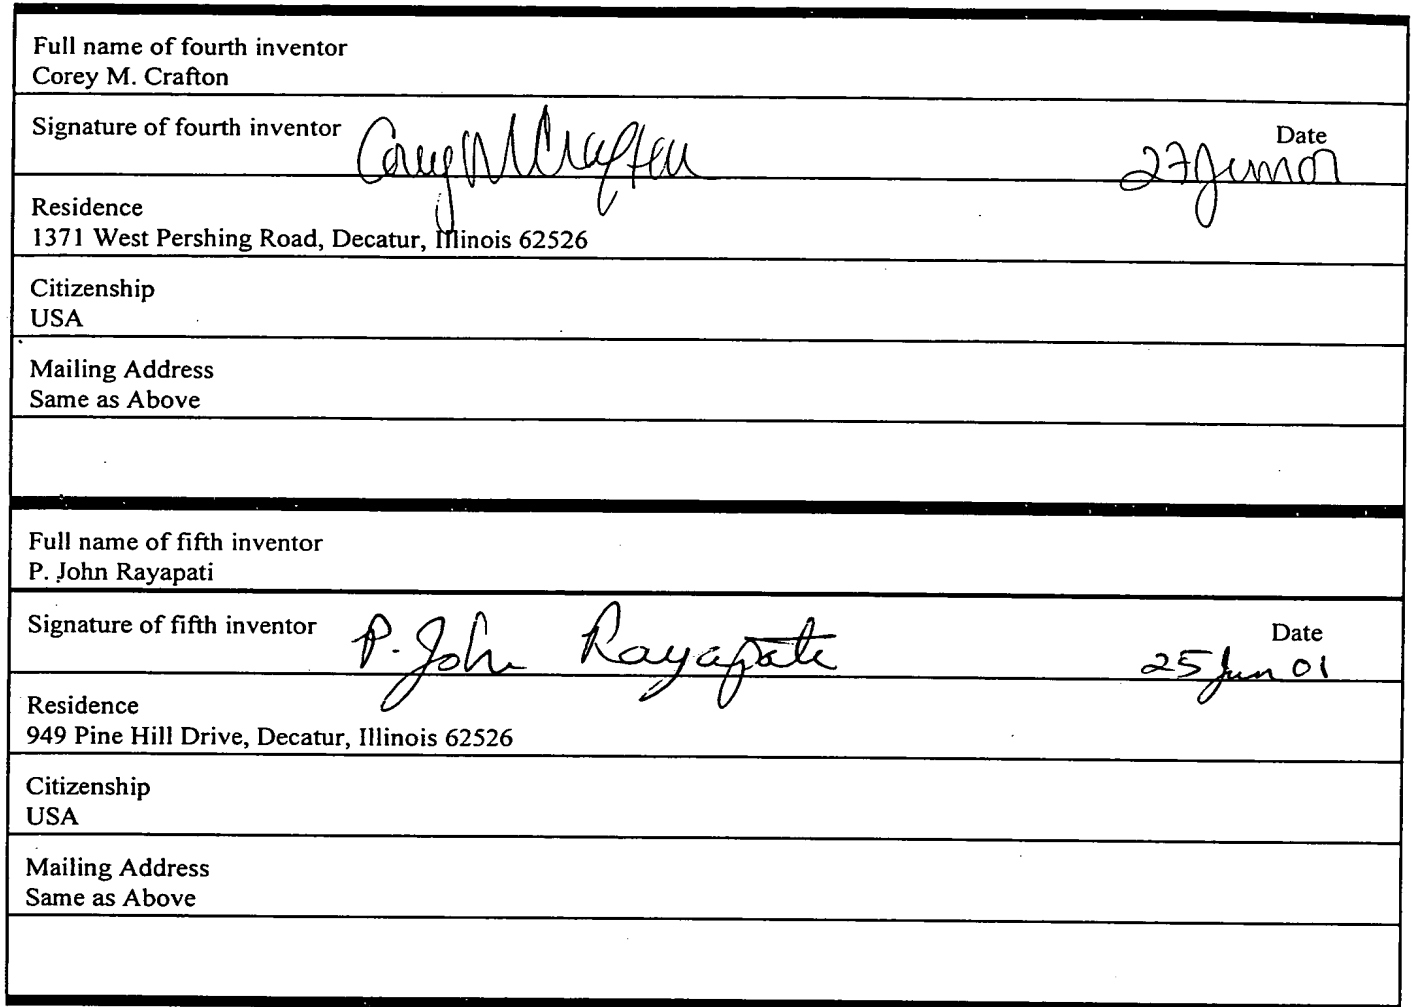 Full name of fourth inventor
Corey M. Crafton
Signature of fourth inventor Corey M Crafton
Date
27 Jun 01
Residence
1371 West Pershing Road, Decatur, Illinois 62526
Citizenship
USA
Mailing Address
Same as Above
Full name of fifth inventor
P. John Rayapati
Signature of fifth inventor P. John Rayapati
Date
25 Jun 01
Residence
949 Pine Hill Drive, Decatur, Illinois 62526
Citizenship
USA
Mailing Address
Same as Above